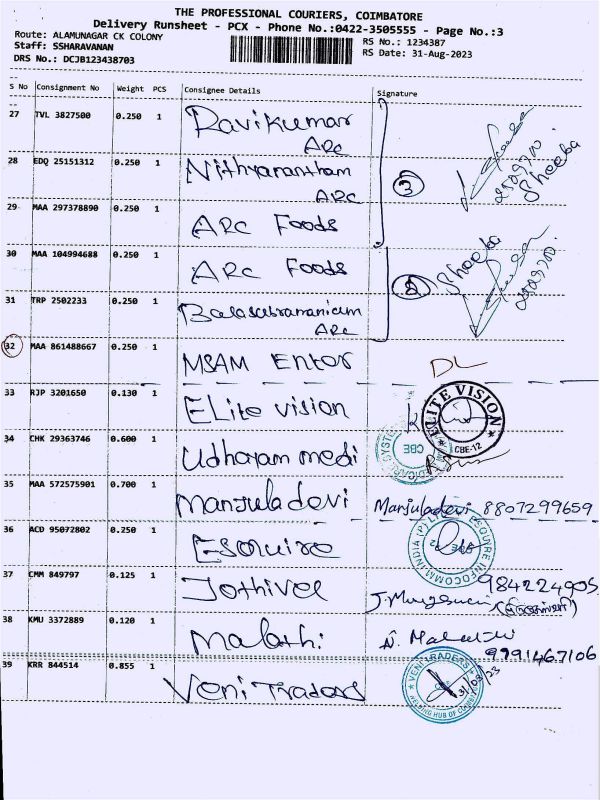 THE PROFESSIONAL COURIERS, COIMBATORE
Delivery Runsheet - PCX - Phone No.:0422-3505555 - Page No.:3
Route: ALAMUNAGAR CK COLONY
Staff: SSHARAVANAN
DRS No.: DCJB123438703
RS No.: 1234387
RS Date: 31-Aug-2023
S No Consignment No Weight PCS Consignee Details Signature
27 TVL 3827500 0.250 1 Ravikumar
ARC
28 EDQ 25151312 0.250 1 Nithyanantham
ARC
3
Sheeba
29 MAA 297378890 0.250 1 ARC Foods
30 MAA 104994688 0.250 1 ARC Foods
2
Sheeba
31 TRP 2502233 0.250 1 Balasubramanium
ARC
32 MAA 861488667 0.250 1 MSAM Enter DL
33 RJP 3201650 0.130 1 ELite vision
ELITE VISION
CBE-12
34 CHK 29363746 0.600 1 Udhayam medi
CBE
35 MAA 572575901 0.700 1 Manjuladevi Manjuladevi 8807299659
36 ACD 95072802 0.250 1 Esquire
ESQUIRE INFOCOMM INDIA (P) L
37 CMM 849797 0.125 1 Jothivel
984224905
38 KMU 3372889 0.120 1 Malathi
9791467106
39 KRR 844514 0.855 1 Veni Traders
VENI TRADERS
WELDING HUB OF COIMBATORE
31/08/23